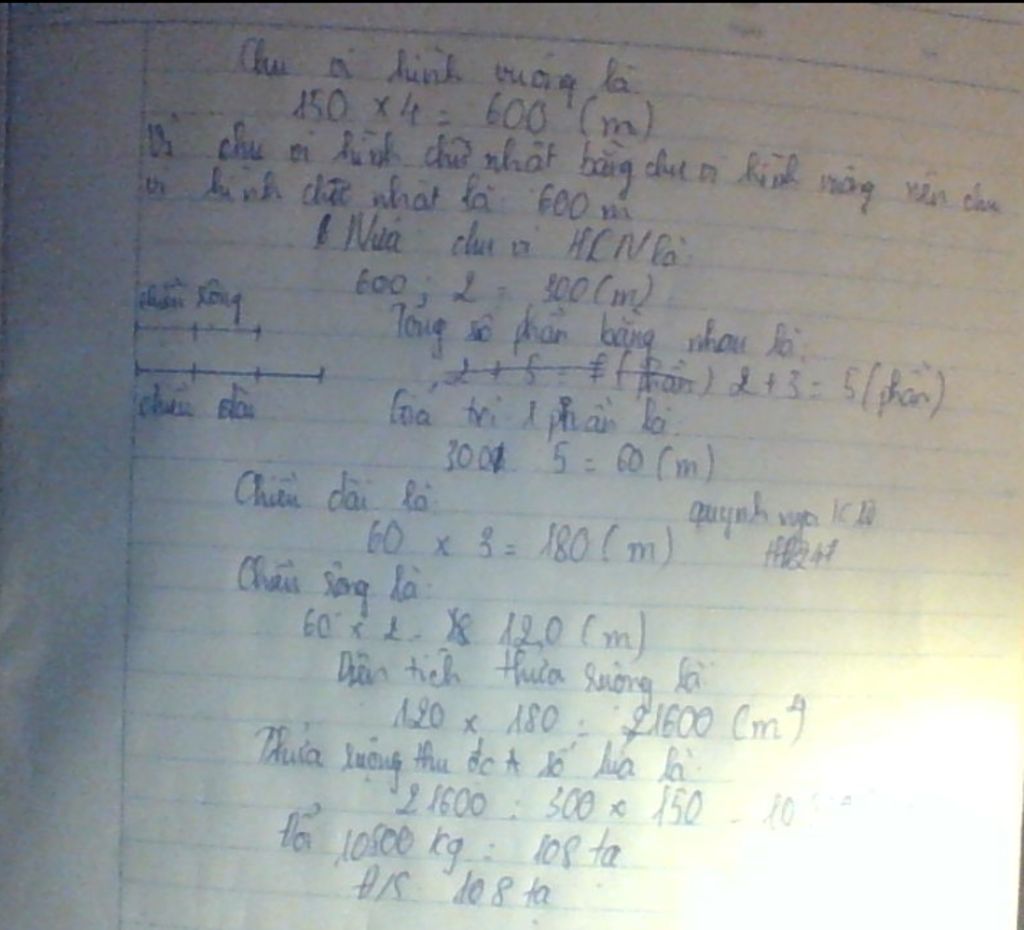 Chu vi hình vuông là
150 x 4 = 600 (m)
Vì chu vi hình chữ nhật bằng chu vi hình vuông nên chu
vi hình chữ nhật là 600 m
Nửa chu vi HCN là:
600 : 2 = 300 (m)
chiều rộng
Tổng số phần bằng nhau là:
2 + 5 = 7 (phần) 2 + 3 = 5 (phần)
chiều dài
Giá trị 1 phần là:
300 : 5 = 60 (m)
Chiều dài là:
quỳnh nga
60 x 3 = 180 (m)
Chiều rộng là:
60 x 2 = 120 (m)
Diện tích thửa ruộng là
120 x 180 = 21600 (m
Thửa ruộng thu đc số lúa là:
21600 : 300 x 150 = 10
Đổi 10800 kg = 108 tạ
Đ/S 108 tạ